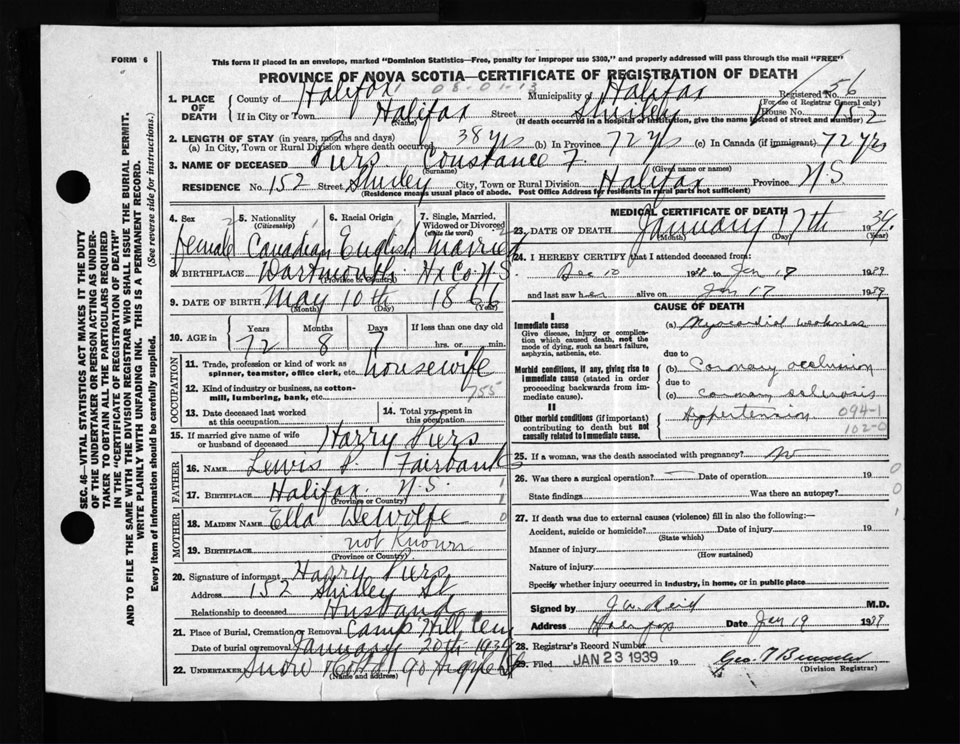 FORM 6
This form if placed in an envelope, marked "Dominion Statistics—Free, penalty for improper use $300," and properly addressed will pass through the mail "FREE"
PROVINCE OF NOVA SCOTIA—CERTIFICATE OF REGISTRATION OF DEATH
SEC. 46—VITAL STATISTICS ACT MAKES IT THE DUTY
OF THE UNDERTAKER OR PERSON ACTING AS UNDER-
TAKER TO OBTAIN ALL THE PARTICULARS REQUIRED
IN THE "CERTIFICATE OF REGISTRATION OF DEATH"
AND TO FILE THE SAME WITH THE DIVISION REGISTRAR WHO SHALL ISSUE THE BURIAL PERMIT.
WRITE PLAINLY WITH UNFADING INK. THIS IS A PERMANENT RECORD.
Every item of Information should be carefully supplied. (See reverse side for instructions.)
1. PLACE OF DEATH
County of Halifax Municipality of Halifax Registered No. 56
08-01-13
(For use of Registrar General only)
If in City or Town Halifax Street Shirley House No. 152
(Name) (If death occurred in a hospital or institution, give the name instead of street and number)
2. LENGTH OF STAY (in years, months and days)
(a) In City, Town or Rural Division where death occurred 38 yrs (b) In Province 72 yrs (c) In Canada (if immigrant) 72 yrs
3. NAME OF DECEASED Piers Constance F.
(Surname) (Given name or names)
RESIDENCE No. 152 Street Shirley City, Town or Rural Division Halifax Province N.S
(Residence means usual place of abode. Post Office Address for residents in rural parts not sufficient)
4. Sex 5. Nationality (Citizenship) 6. Racial Origin 7. Single, Married, Widowed or Divorced (write the word)
female Canadian English Married
8. BIRTHPLACE Dartmouth Hx Co N.S.
(Province or Country)
9. DATE OF BIRTH May 10th 1866
(Month) (Day) (Year)
10. AGE in Years Months Days If less than one day old
72 8 7 hrs. or min.
OCCUPATION
11. Trade, profession or kind of work as spinner, teamster, office clerk, etc. Housewife
12. Kind of industry or business, as cotton-mill, lumbering, bank, etc. 755
13. Date deceased last worked at this occupation
14. Total yrs. spent in this occupation
15. If married give name of wife or husband of deceased Harry Piers
FATHER
16. NAME Lewis P. Fairbanks
17. BIRTHPLACE Halifax N.S.
(Province or Country)
MOTHER
18. MAIDEN NAME Ella DeWolfe
19. BIRTHPLACE not known
(Province or Country)
20. Signature of informant Harry Piers
Address 152 Shirley St
Relationship to deceased Husband
21. Place of Burial, Cremation or Removal Camp Hill Cem
Date of burial or removal January 20th 1939
22. UNDERTAKER Snow & Co Ltd 90 Argyle St
(Name and address)
MEDICAL CERTIFICATE OF DEATH
23. DATE OF DEATH January 17th 1939.
(Month) (Day) (Year)
24. I HEREBY CERTIFY that I attended deceased from:
Dec 10 1938 to Jan 17 1939
and last saw her alive on Jan 17 1939
CAUSE OF DEATH
I
Immediate cause
Give disease, injury or complication which caused death, not the mode of dying, such as heart failure, asphyxia, asthenia, etc.
(a) Myocardial weakness
due to
Morbid conditions, if any, giving rise to immediate cause (stated in order proceeding backwards from immediate cause).
(b) Coronary occlusion
due to
(c) coronary sclerosis
II
Other morbid conditions (if important) contributing to death but not causally related to immediate cause.
Hypertension 094-1
102-0
25. If a woman, was the death associated with pregnancy? no
26. Was there a surgical operation? Date of operation 19
State findings Was there an autopsy?
27. If death was due to external causes (violence) fill in also the following:—
Accident, suicide or homicide? Date of injury 19
(State which)
Manner of injury
(How sustained)
Nature of injury
Specify whether injury occurred in industry, in home, or in public place
Signed by J.A. Reid M.D.
Address Halifax Date Jan 19 1939
28. Registrar's Record Number
29. Filed JAN 23 1939 19
(Division Registrar)